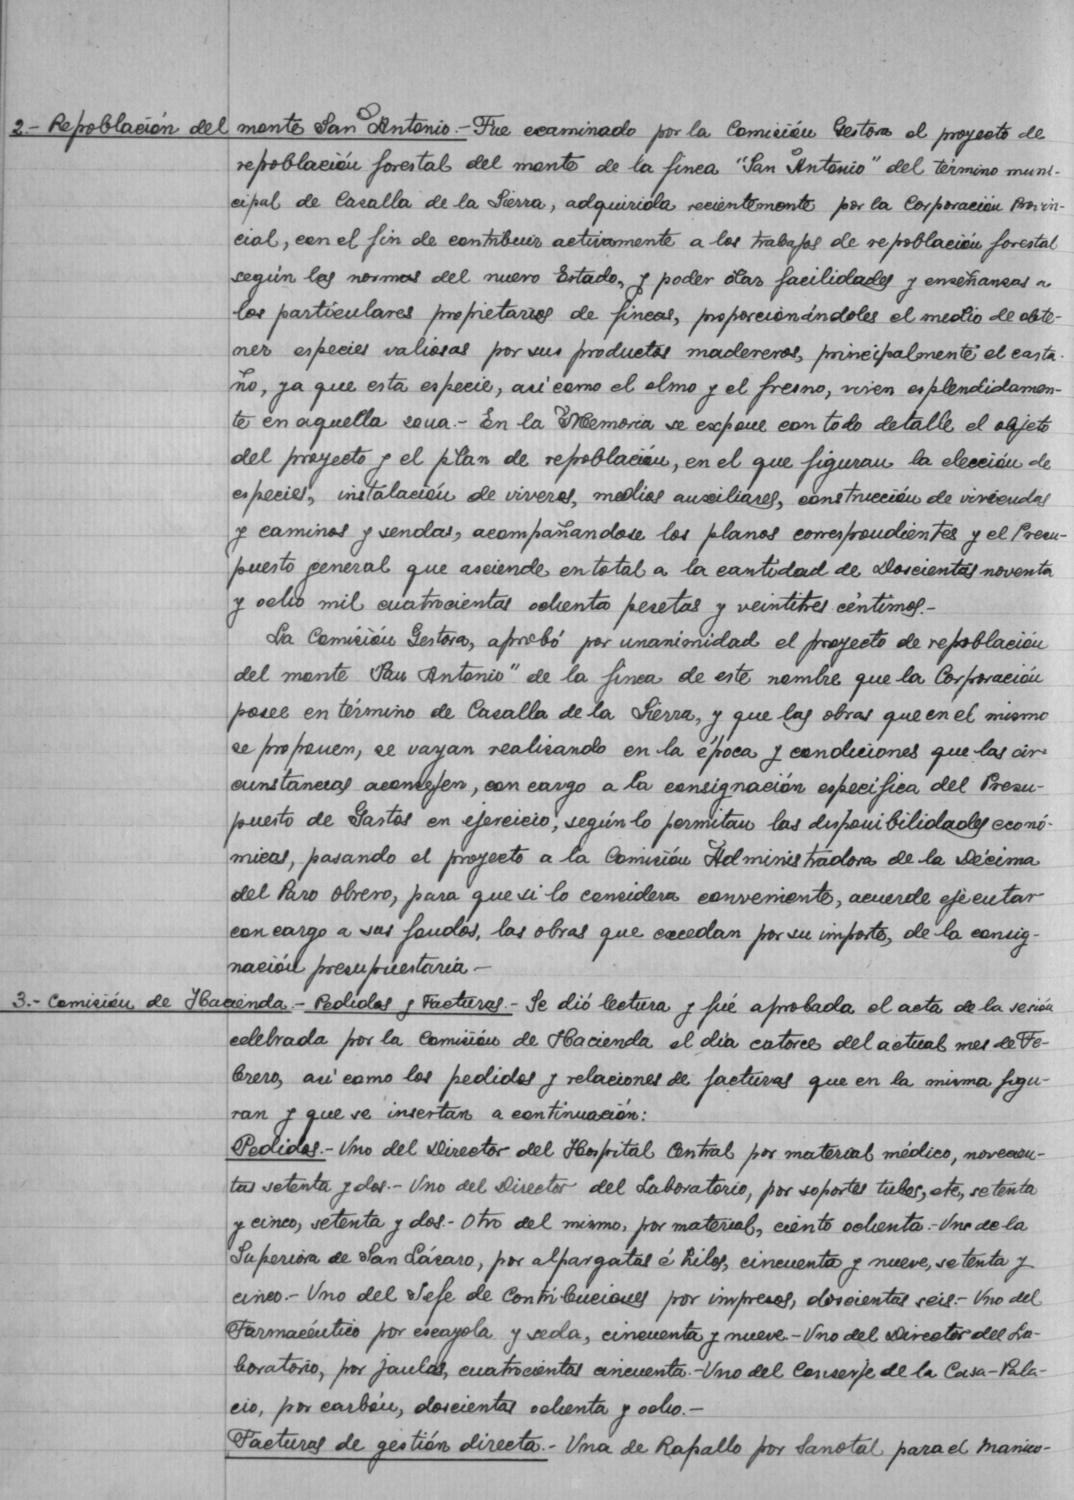 2.- Repoblación del monte San Antonio.- Fue examinado por la Comisión Gestora el proyecto de
repoblación forestal del monte de la finca "San Antonio" del término muni-
cipal de Cazalla de la Sierra, adquirida recientemente por la Corporación Provin-
cial, con el fin de contribuir activamente a los trabajos de repoblación forestal
según las normas del nuevo Estado, y poder dar facilidades y enseñanzas a
los particulares propietarios de fincas, proporcionándoles el medio de obte-
ner especies valiosas por sus productos madereros, principalmente el casta-
ño, ya que esta especie, así como el olmo y el fresno, viven esplendidamen-
te en aquella zona.- En la Memoria se expone con todo detalle el objeto
del proyecto y el plan de repoblación, en el que figuran la elección de
especies, instalación de viveros, medios auxiliares, construcción de viviendas
y caminos y sendas, acompañandose los planos correspondientes y el Presu-
puesto general que asciende en total a la cantidad de Doscientas noventa
y ocho mil cuatrocientas ochenta pesetas y veintitres céntimos.-
La Comisión Gestora, aprobó por unanimidad el proyecto de repoblación
del monte San Antonio" de la finca de este nombre que la Corporación
posee en término de Cazalla de la Sierra, y que las obras que en el mismo
se proponen, se vayan realizando en la época y condiciones que las cir-
cunstancias aconsejen, con cargo a la consignación específica del Presu-
puesto de Gastos en ejercicio, según lo permitan las disponibilidades econó-
micas, pasando el proyecto a la Comisión Administradora de la Décima
del Paro Obrero, para que si lo considera conveniente, acuerde ejecutar
con cargo a sus fondos, las obras que excedan por su importe, de la consig-
nación presupuestaria.-
3.- Comisión de Hacienda.- Pedidos y Facturas.- Se dió lectura y fué aprobada el acta de la sesión
celebrada por la Comisión de Hacienda el día catorce del actual mes de Fe-
brero, así como los pedidos y relaciones de facturas que en la misma figu-
ran y que se insertan a continuación:
Pedidos.- Uno del Director del Hospital Central por material médico, novecien-
tas setenta y dos.- Uno del Director del Laboratorio, por soportes tubos, etc, setenta
y cinco, setenta y dos.- Otro del mismo, por material, ciento ochenta.- Uno de la
Superiora de San Lázaro, por alpargatas é hilos, cincuenta y nueve, setenta y
cinco.- Uno del Jefe de Contribuciones por impresos, doscientas seis.- Uno del
Farmacéutico por escayola y seda, cincuenta y nueve.- Uno del Director del La-
boratorio, por jaulas, cuatrocientas cincuenta.- Uno del Conserje de la Casa-Pala-
cio, por carbón, doscientas ochenta y ocho.-
Facturas de gestión directa.- Una de Rapallo por Sanotal para el Manico-